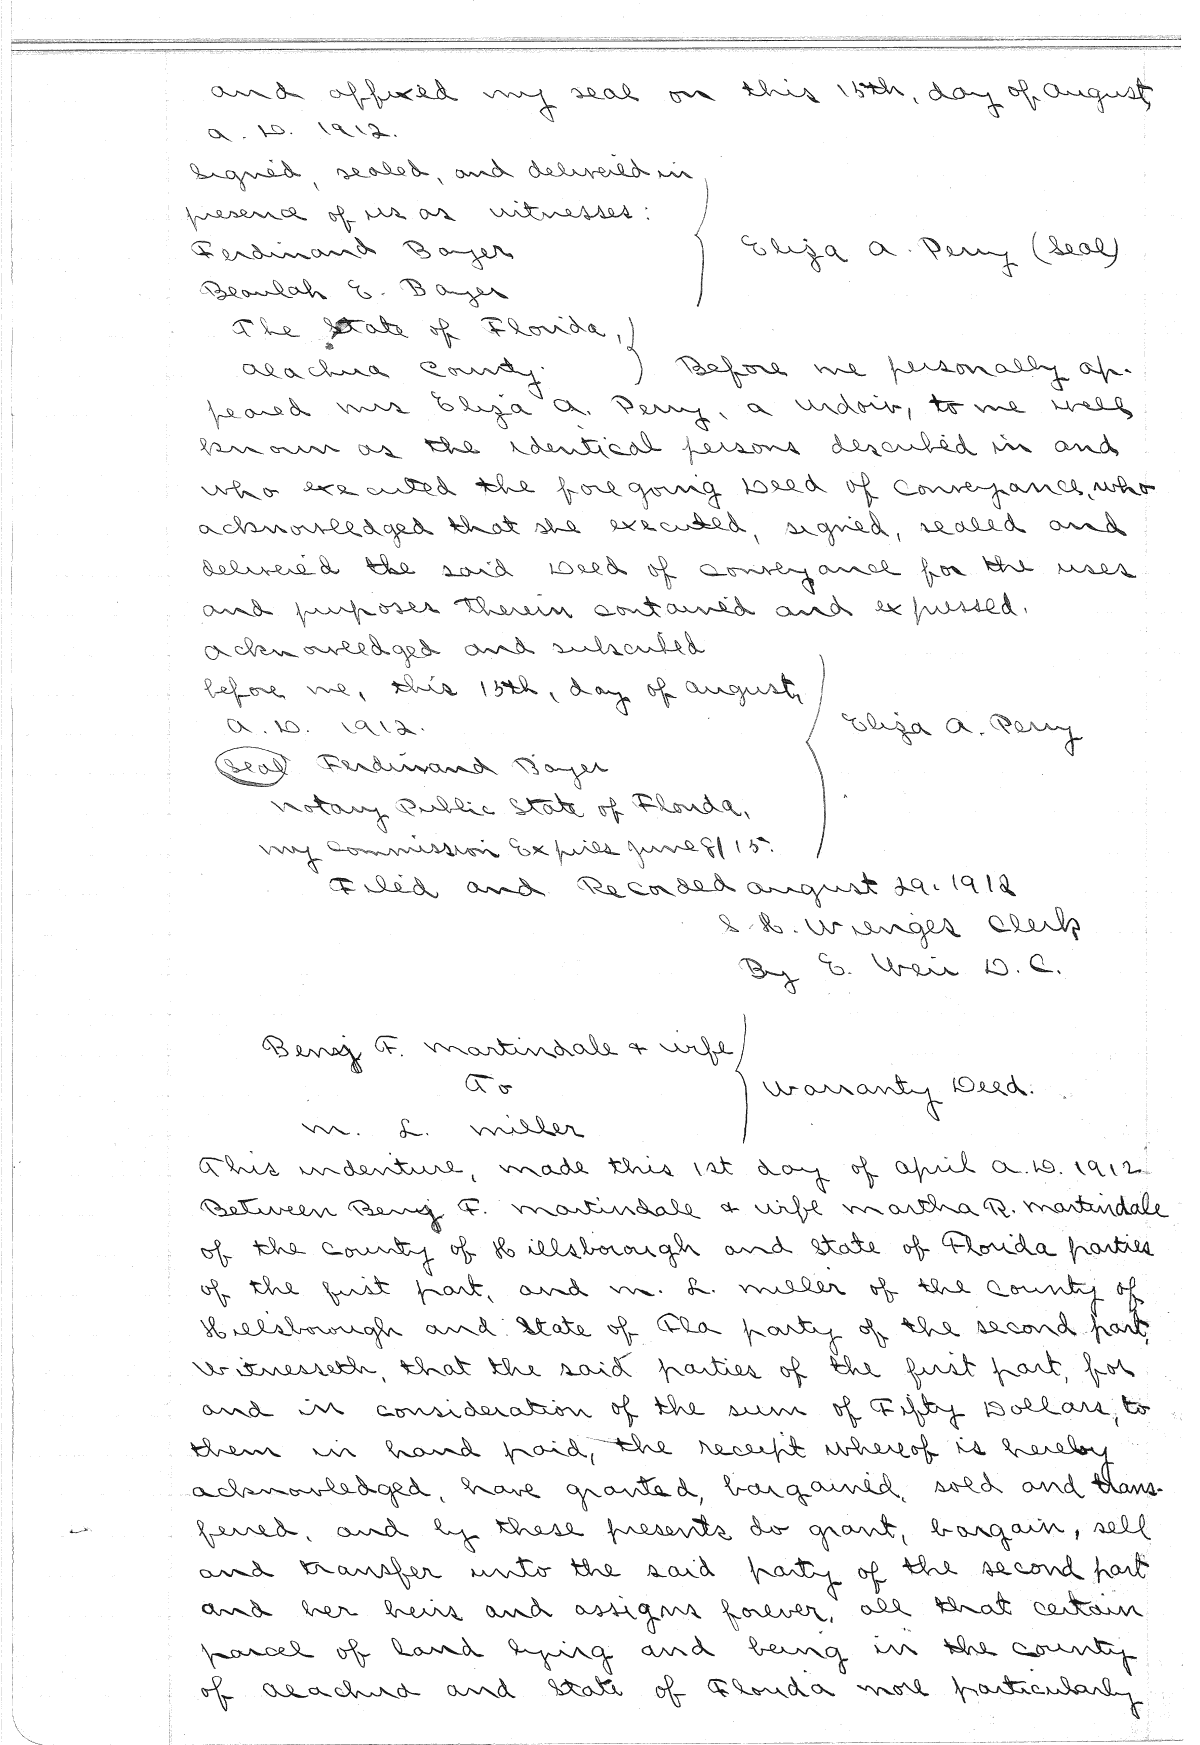 and affixed my seal on this 15th, day of August,
A. D. 1912.
Signed, sealed, and delivered in
presence of us as witnesses:
Ferdinand Bayer
Eliza A. Perry (Seal)
Beaulah E. Bayer
The State of Florida,
Alachua County.
Before me personally ap-
peared Mrs Eliza A. Perry, a widow, to me well
known as the identical persons described in and
who executed the foregoing Deed of Conveyance, who
acknowledged that she executed, signed, sealed and
delivered the said Deed of Conveyance for the uses
and purposes therein contained and expressed.
Acknowledged and subscribed
before me, this 15th, day of August,
A. D. 1912.
Eliza A. Perry
Seal Ferdinand Bayer
Notary Public State of Florida,
My Commission Expires June 8/15.
Filed and Recorded August 29. 1912
S. H. Wienges Clerk
By E. Weir D. C.
Benj F. Martindale & wife
To
Warranty Deed.
M. L. Miller
This indenture, made this 1st day of April A. D. 1912
Between Benj F. Martindale & wife Martha R. Martindale
of the County of Hillsborough and State of Florida parties
of the first part, and M. L. Miller of the County of
Hillsborough and State of Fla party of the second part,
Witnesseth, that the said parties of the first part, for
and in consideration of the sum of Fifty Dollars, to
them in hand paid, the receipt whereof is hereby
acknowledged, have granted, bargained, sold and trans-
ferred, and by these presents do grant, bargain, sell
and transfer unto the said party of the second part
and her heirs and assigns forever, all that certain
parcel of land lying and being in the county
of Alachua and State of Florida more particularly